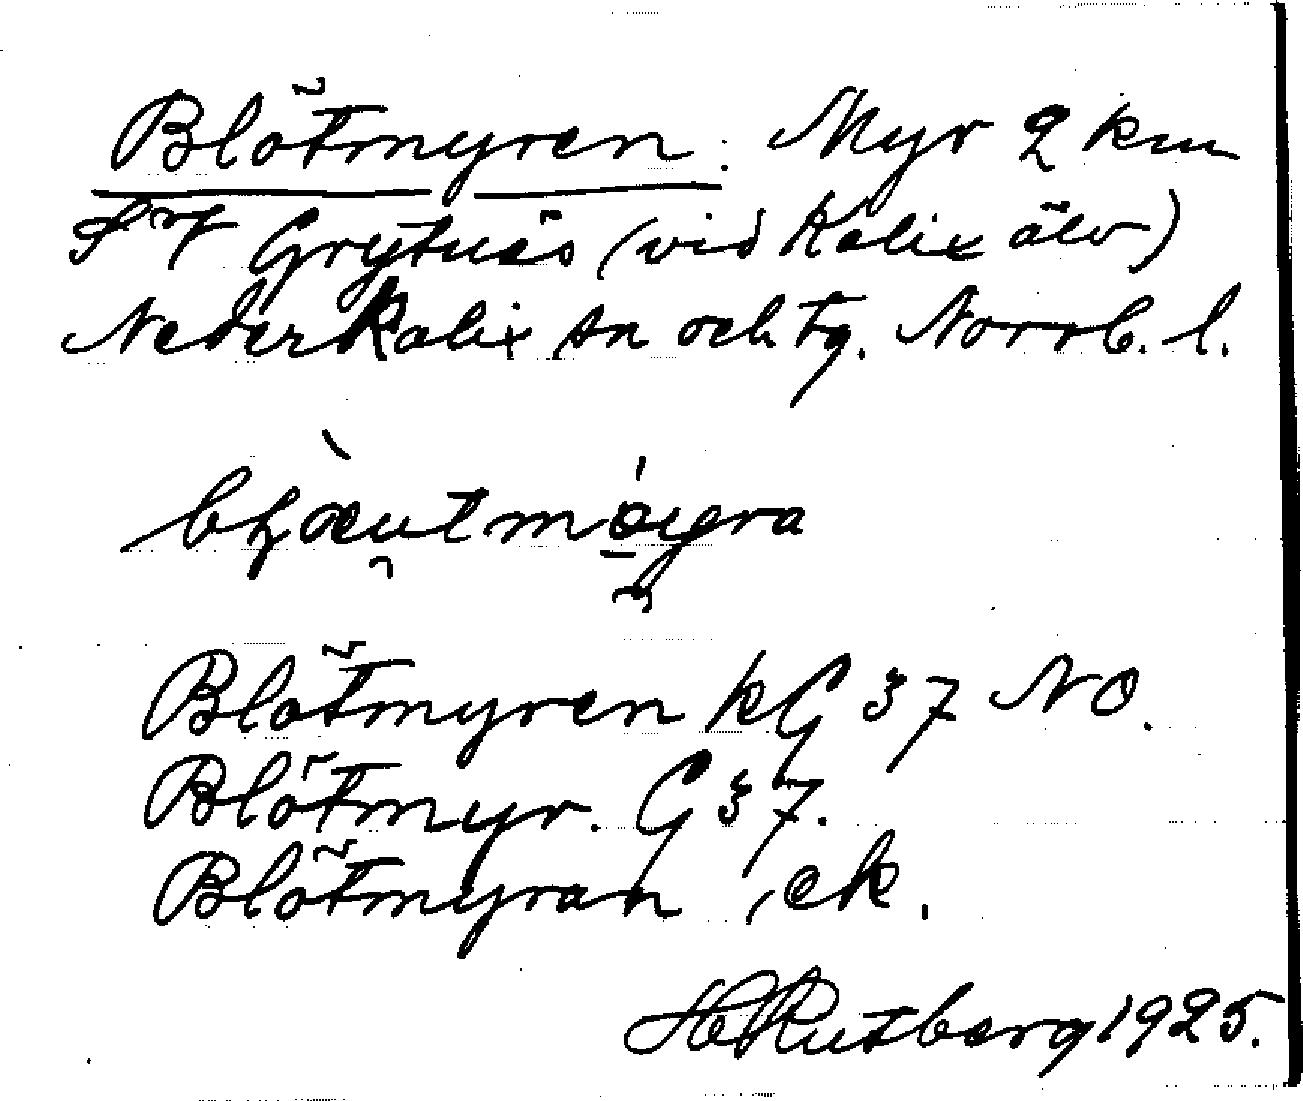 Blötmyren: Myr 2 km
Grytnäs (vid Kalix älv)
Nederkalix sn och tg. Norrb. l.
Blötmyren kG 37 NO.
Blötmyr. G 37.
Blötmyran, ek.
H Rutberg 1925.